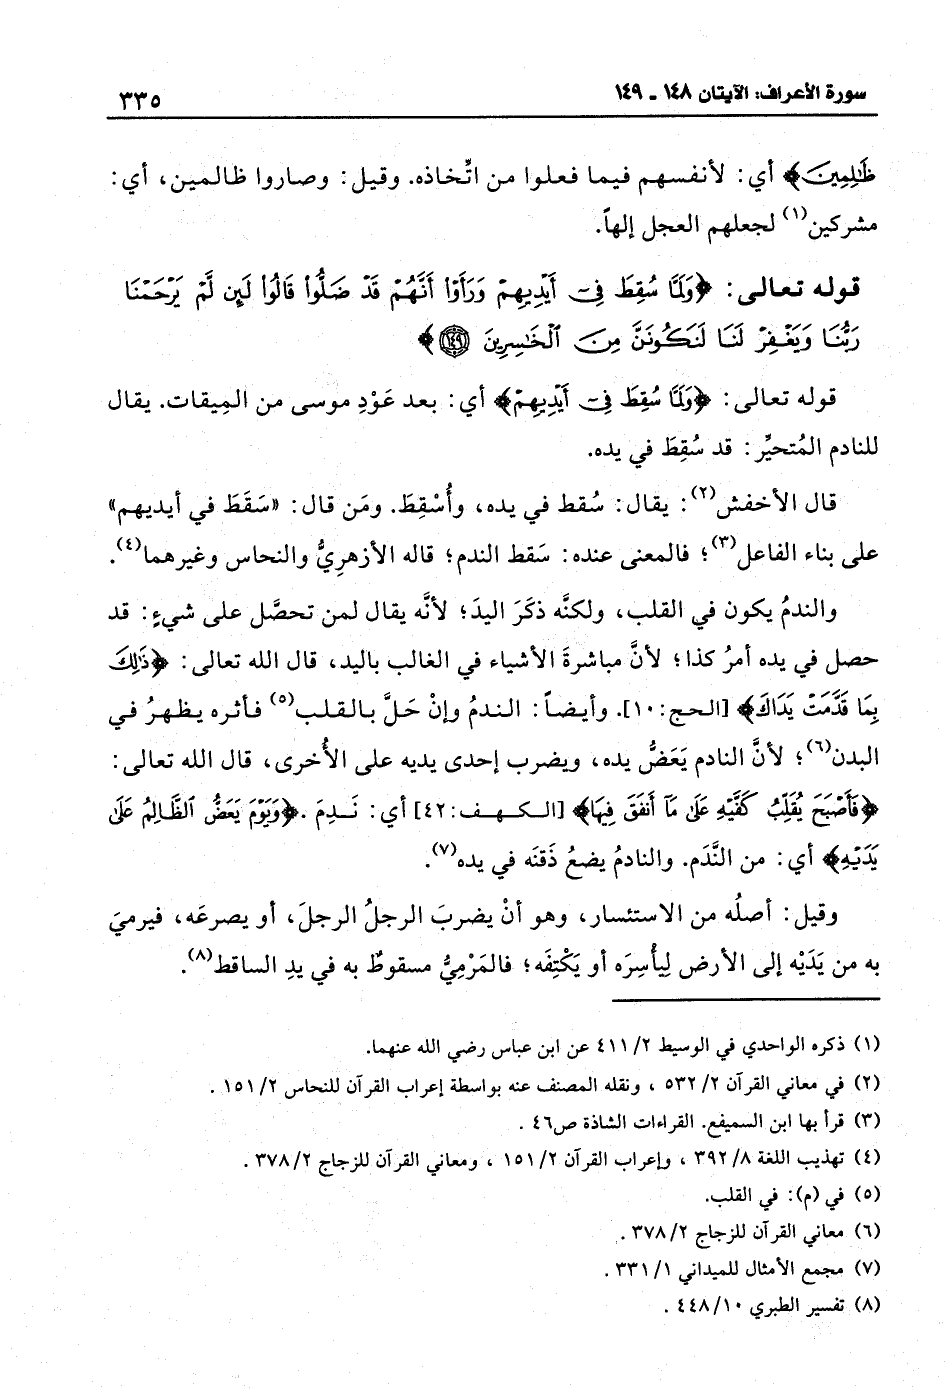 سورة الأعراف: الآيتان ١٤٨ - ١٤٩
٣٣٥
ظَٰلِمِينَ﴾ أي: لأنفسهم فيما فعلوا من اتِّخاذه. وقيل: وصاروا ظالمين، أي:
مشركين(١) لجعلهم العجل إلهاً.
قوله تعالى: ﴿وَلَمَّا سُقِطَ فِىٓ أَيْدِيهِمْ وَرَأَوْا۟ أَنَّهُمْ قَدْ ضَلُّوا۟ قَالُوا۟ لَئِن لَّمْ يَرْحَمْنَا
رَبُّنَا وَيَغْفِرْ لَنَا لَنَكُونَنَّ مِنَ ٱلْخَٰسِرِينَ ١٤٩﴾
قوله تعالى: ﴿وَلَمَّا سُقِطَ فِىٓ أَيْدِيهِمْ﴾ أي: بعد عَوْدِ موسى من المِيقات. يقال
للنادم المُتحيِّر: قد سُقِطَ في يده.
قال الأخفش(٢): يقال: سُقط في يده، وأُسْقِطَ. ومَن قال: «سَقَطَ في أيديهم»
على بناء الفاعل(٣)؛ فالمعنى عنده: سَقط الندم؛ قاله الأزهرِيُّ والنحاس وغيرهما(٤).
والندمُ يكون في القلب، ولكنَّه ذكَرَ اليدَ؛ لأنَّه يقال لمن تحصَّل على شيءٍ: قد
حصل في يده أمرُ كذا؛ لأنَّ مباشرةَ الأشياء في الغالب باليد، قال الله تعالى: ﴿ذَٰلِكَ
بِمَا قَدَّمَتْ يَدَاكَ﴾ [الحج:١٠]. وأيضاً: الندمُ وإنْ حَلَّ بالقلب(٥) فأثره يظهرُ في
البدن(٦)؛ لأنَّ النادم يَعَضُّ يده، ويضرب إحدى يديه على الأُخرى، قال الله تعالى:
﴿فَأَصْبَحَ يُقَلِّبُ كَفَّيْهِ عَلَىٰ مَآ أَنفَقَ فِيهَا﴾ [الكهف:٤٢] أي: نَدِمَ. ﴿وَيَوْمَ يَعَضُّ ٱلظَّالِمُ عَلَىٰ
يَدَيْهِ﴾ أي: من النَّدَم. والنادمُ يضعُ ذَقنَه في يده(٧).
وقيل: أصلُه من الاستئسار، وهو أنْ يضربَ الرجلُ الرجلَ، أو يصرعَه، فيرميَ
به من يَدَيْه إلى الأرض لِيأْسِرَه أو يَكْتِفَه؛ فالمَرْمِيُّ مسقوطٌ به في يدِ الساقط(٨).
(١) ذكره الواحدي في الوسيط ٢/ ٤١١ عن ابن عباس رضي الله عنهما.
(٢) في معاني القرآن ٢/ ٥٣٢ ، ونقله المصنف عنه بواسطة إعراب القرآن للنحاس ٢/ ١٥١ .
(٣) قرأ بها ابن السميفع. القراءات الشاذة ص٤٦ .
(٤) تهذيب اللغة ٨/ ٣٩٢ ، وإعراب القرآن ٢/ ١٥١ ، ومعاني القرآن للزجاج ٢/ ٣٧٨ .
(٥) في (م): في القلب.
(٦) معاني القرآن للزجاج ٢/ ٣٧٨ .
(٧) مجمع الأمثال للميداني ١/ ٣٣١ .
(٨) تفسير الطبري ١٠/ ٤٤٨ .